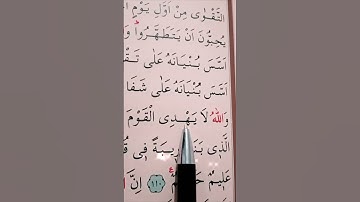 التَّقْوٰى مِنْ اَوَّلِ يَوْمٍ
يُحِبُّونَ اَنْ يَتَطَهَّرُواۜ
اَسَّسَ بُنْيَانَهُ عَلٰى
اَسَّسَ بُنْيَانَهُ عَلٰى شَفَا
وَاللّٰهُ لَا يَهْدِى الْقَوْمَ
الَّذِى رِيبَةً فِى
عَلِيمٌ ﴿١١٠﴾ اِنَّ